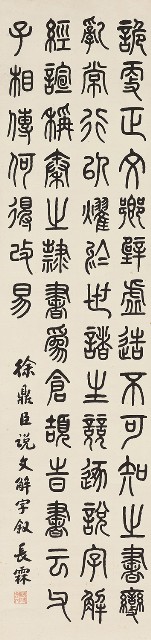 詭更正文鄉壁虛造不可知之書變
亂常行以燿於世諸生競逐說字解
經誼稱秦之隸書為倉頡旹書云父
子相傳何得改易
徐鼎臣說文解字叙 長霖